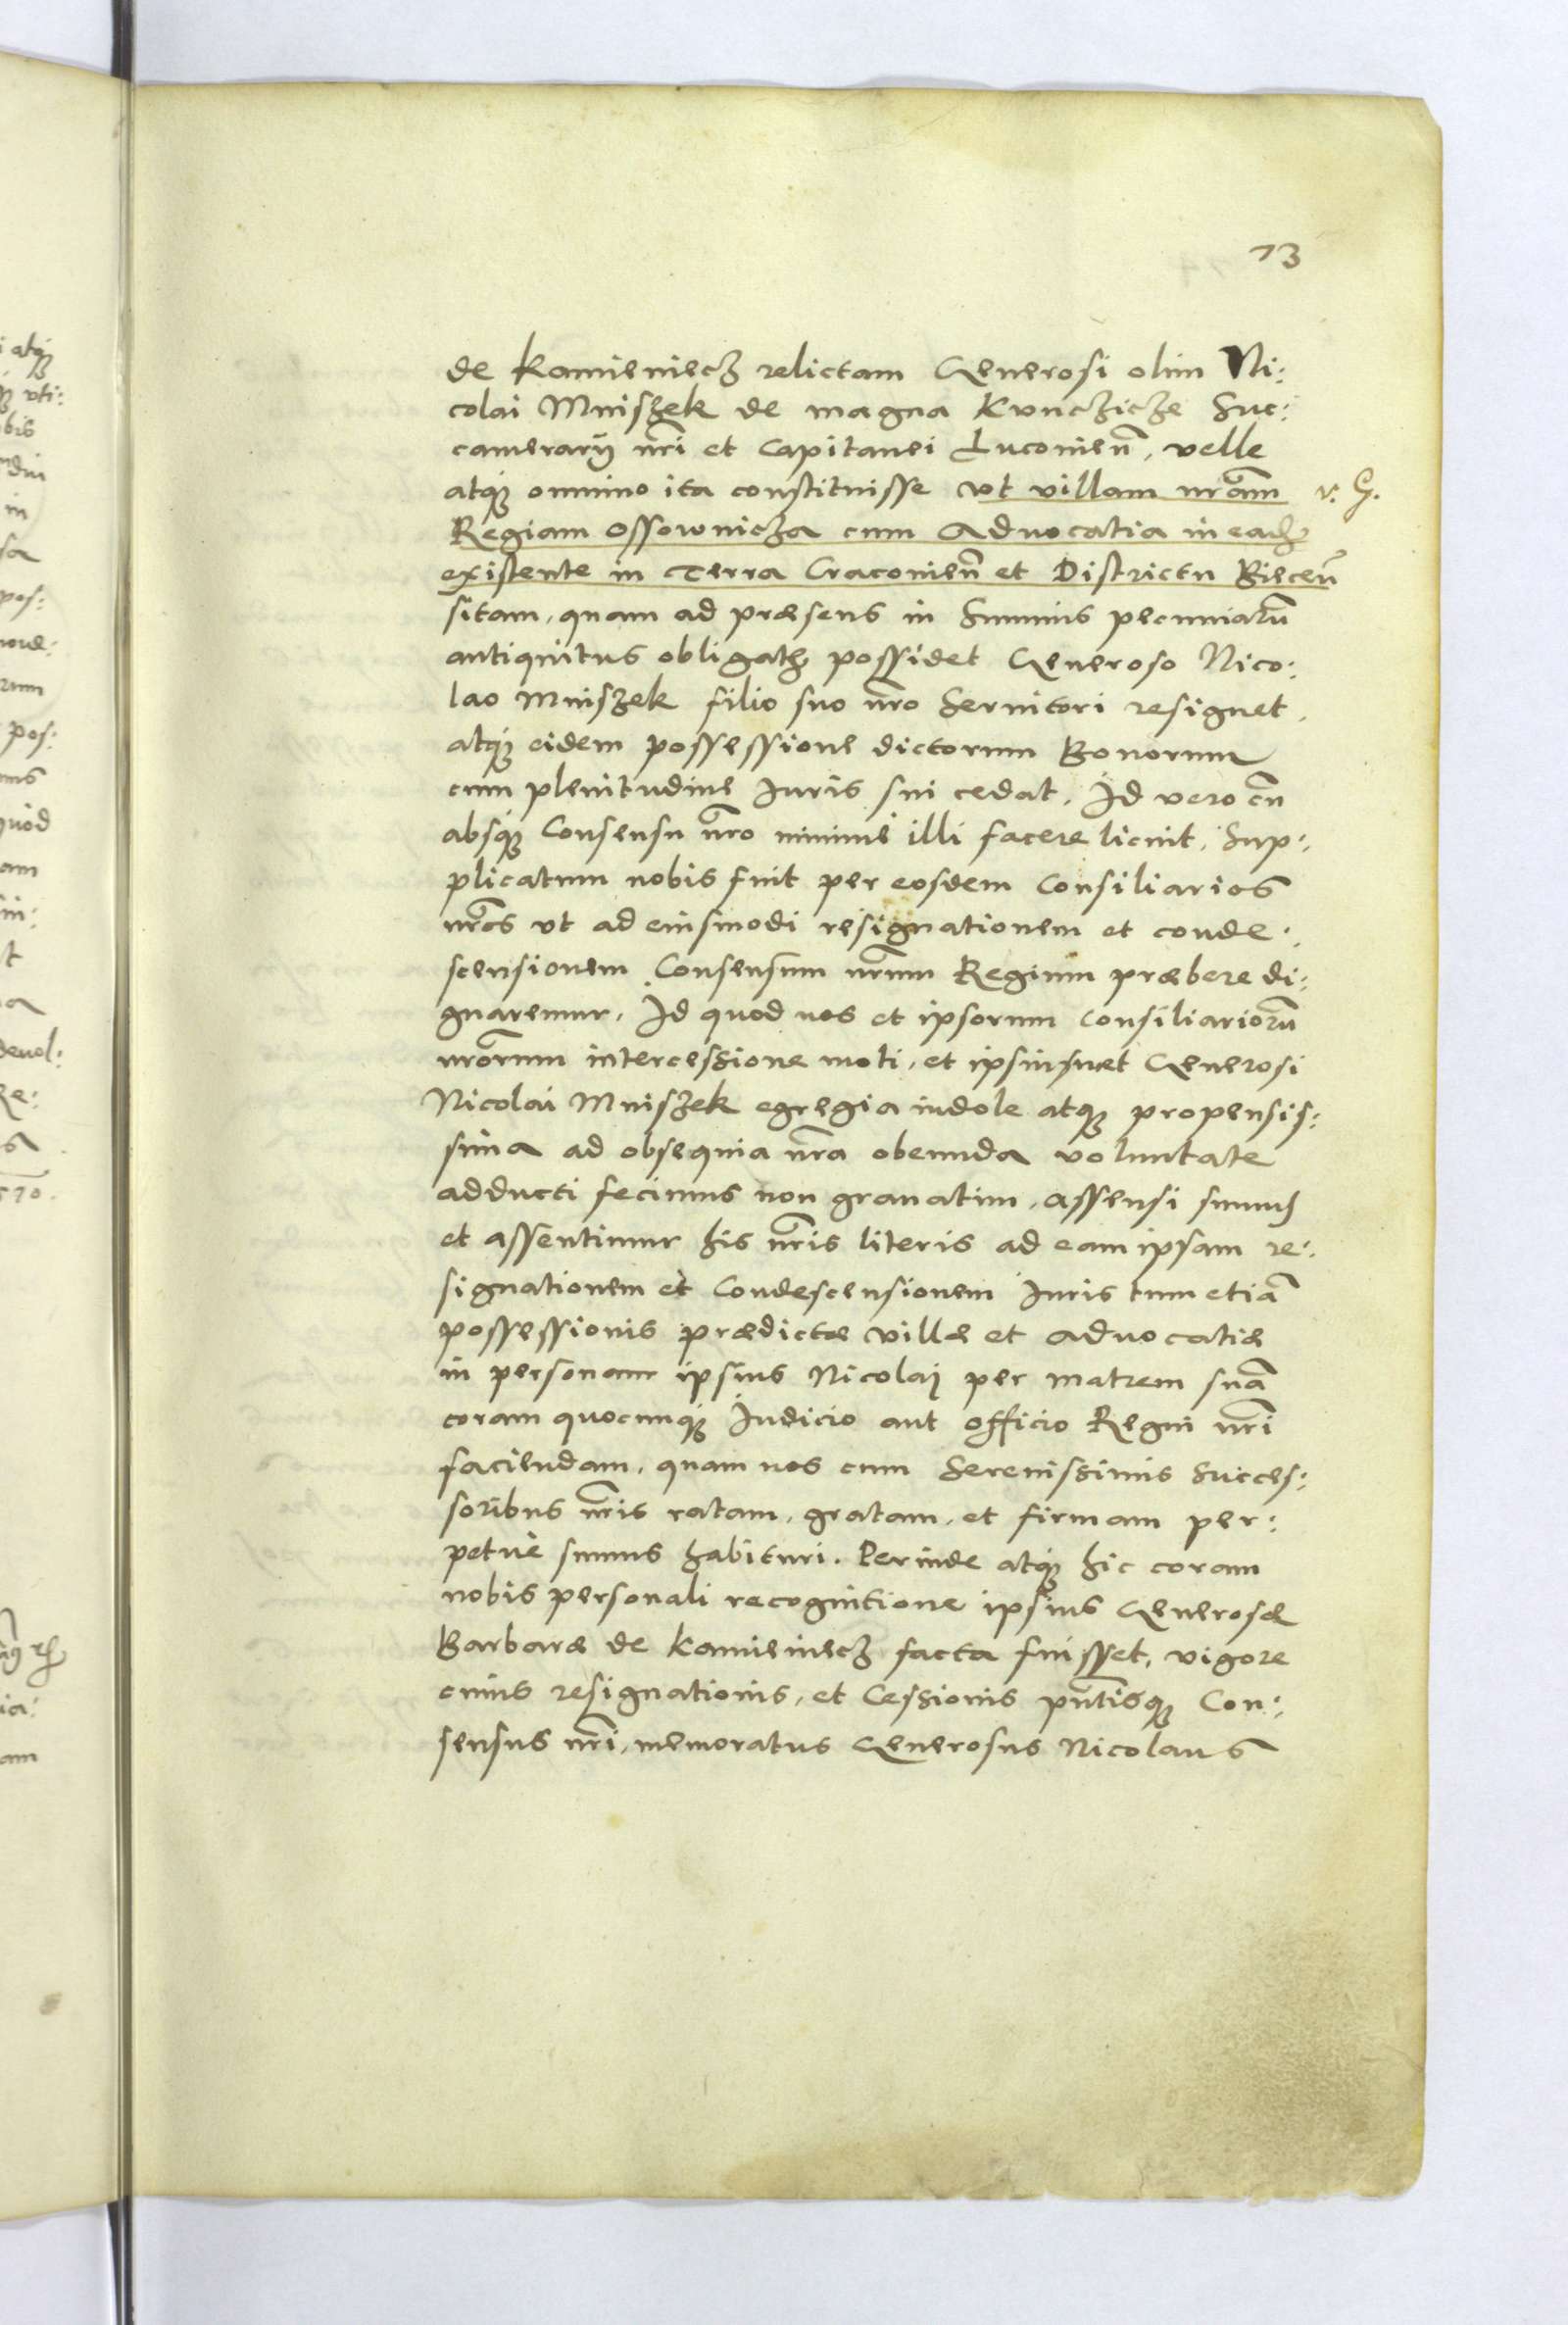 73
de Kamieniecz relictam Generosi olim Ni:
colai Mniszek de magna Kunczicze Suc:
camerarij nr̃i et Capitanei Lucouien̄, velle
atq3 omnino ita constituisse ut villam nr̃am v. G.
Regiam Ossownicza cum Aduocatia in eadē
existente in Terra Cracouien̄ et Districtu Biecen̄
sitam, quam ad præsens in Summis pecuniarū
antiquitus obligatā possidet Generoso Nico:
lao Mniszek filio suo nr̃o Seruitori resignet,
atq3 eidem possessione dictorum Bonorum
cum plenitudine Iuris sui cedat. Id vero cū
absq3 Consensu nr̃o minimè illi facere licuit, Sup:
plicatum nobis fuit per eosdem Consiliarios
nr̃os ut ad eiusmodi resignationem et conde:
scensionem Consensum nr̃um Regium præbere di:
gnaremur. Id quod nos et ipsorum Consiliariorū
nr̃orum intercessione moti, et ipsiusmet Generosi
Nicolai Mniszek egregia indole atq3 propensis:
sima ad obsequia nr̃a obeunda voluntate
adducti fecimus non grauatim, assensi sumus
et assentimur his nr̃is literis ad eam ipsam re:
signationem et Condescensionem Iuris tum etiā
possessionis prædictæ villæ et aduocatiæ
in personam ipsius Nicolaj per matrem suā
coram quocunq3 Iudicio aut officio Regni nr̃i
faciendam, quam nos cum Serenissimis Succes:
soribus nr̃is ratam, gratam, et firmam per:
petuè sumus habituri. Perinde atq3 hic coram
nobis personali recognitione ipsius Generosæ
Barbaræ de Kamieniecz facta fuisset, vigore
cuius resignationis, et Cessionis pn̄tisq3 Con:
sensus nr̃i, memoratus Generosus Nicolaus